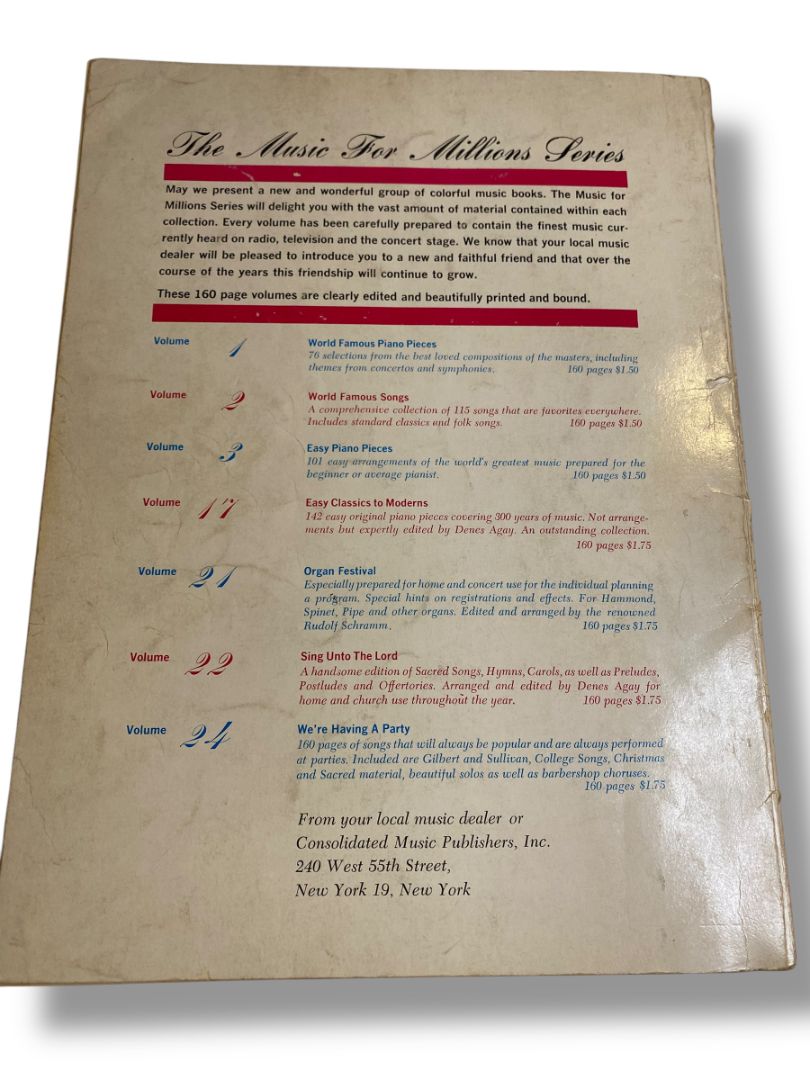 The Music For Millions Series
May we present a new and wonderful group of colorful music books. The Music for
Millions Series will delight you with the vast amount of material contained within each
collection. Every volume has been carefully prepared to contain the finest music cur-
rently heard on radio, television and the concert stage. We know that your local music
dealer will be pleased to introduce you to a new and faithful friend and that over the
course of the years this friendship will continue to grow.
These 160 page volumes are clearly edited and beautifully printed and bound.
Volume 1 World Famous Piano Pieces
76 selections from the best loved compositions of the masters, including
themes from concertos and symphonies. 160 pages $1.50
Volume 2 World Famous Songs
A comprehensive collection of 115 songs that are favorites everywhere.
Includes standard classics and folk songs. 160 pages $1.50
Volume 3 Easy Piano Pieces
101 easy arrangements of the world's greatest music prepared for the
beginner or average pianist. 160 pages $1.50
Volume 17 Easy Classics to Moderns
142 easy original piano pieces covering 300 years of music. Not arrange-
ments but expertly edited by Denes Agay. An outstanding collection.
160 pages $1.75
Volume 21 Organ Festival
Especially prepared for home and concert use for the individual planning
a program. Special hints on registrations and effects. For Hammond,
Spinet, Pipe and other organs. Edited and arranged by the renowned
Rudolf Schramm. 160 pages $1.75
Volume 22 Sing Unto The Lord
A handsome edition of Sacred Songs, Hymns, Carols, as well as Preludes,
Postludes and Offertories. Arranged and edited by Denes Agay for
home and church use throughout the year. 160 pages $1.75
Volume 24 We're Having A Party
160 pages of songs that will always be popular and are always performed
at parties. Included are Gilbert and Sullivan, College Songs, Christmas
and Sacred material, beautiful solos as well as barbershop choruses.
160 pages $1.75
From your local music dealer or
Consolidated Music Publishers, Inc.
240 West 55th Street,
New York 19, New York